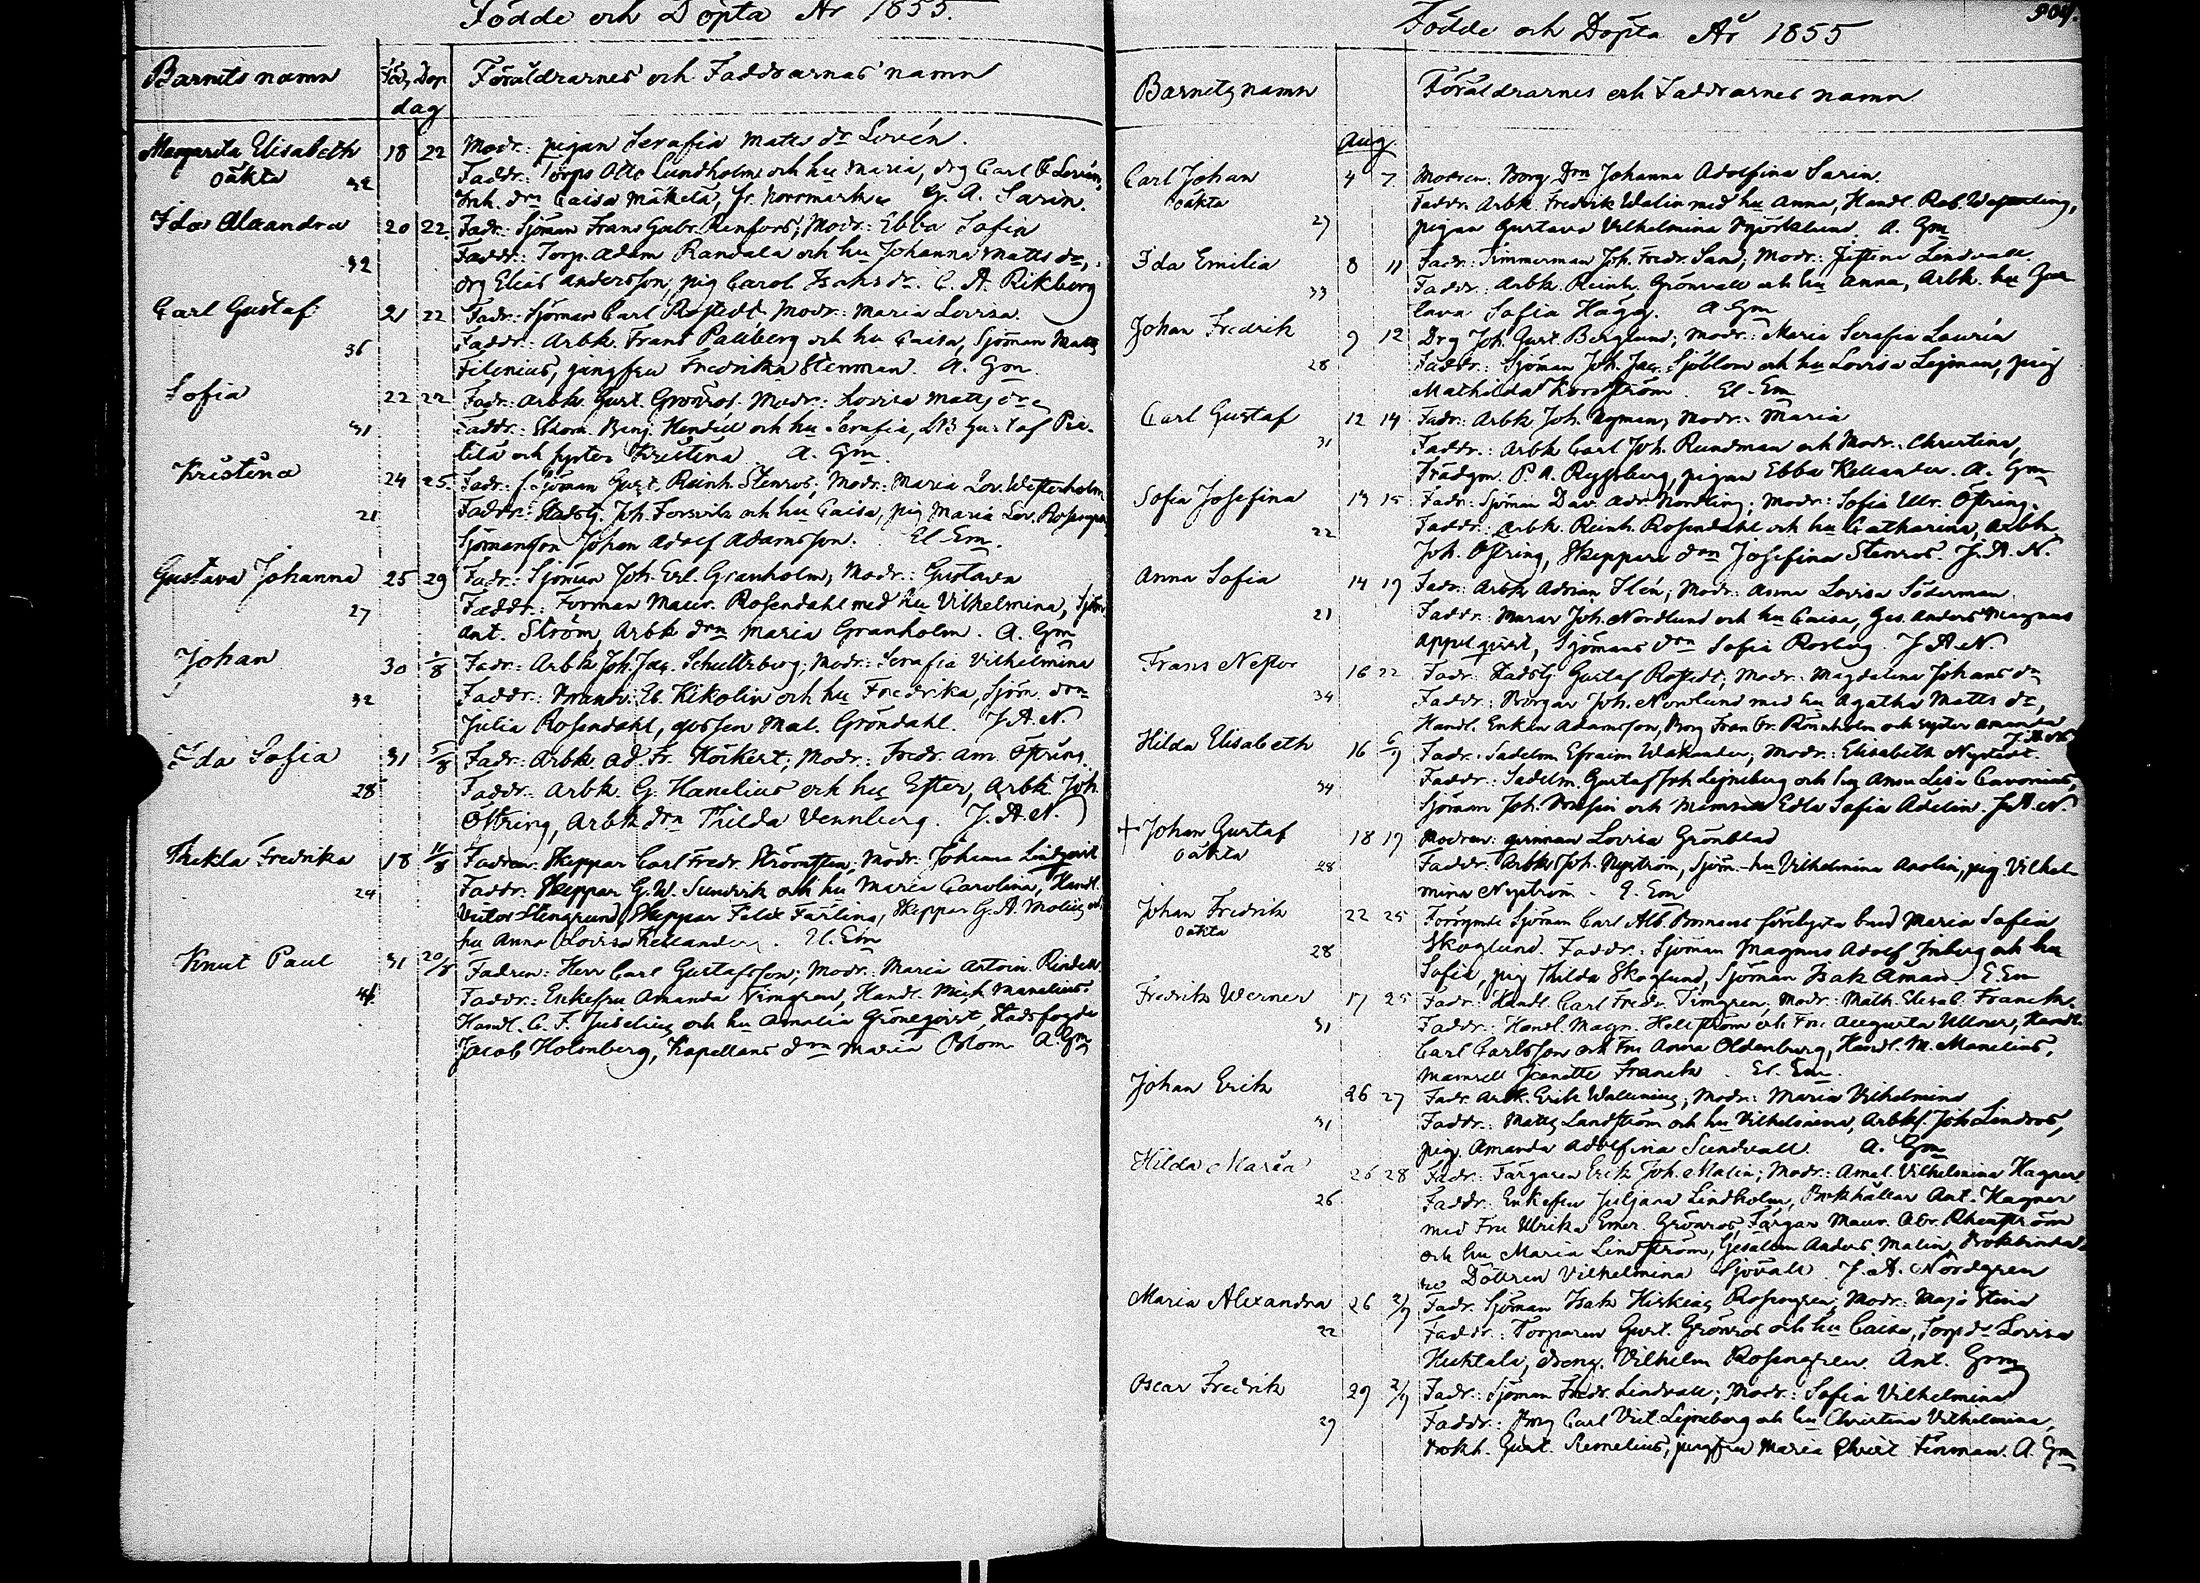 Födde och Döpta År 1855.
Barnets namn
Föd. Dop
dag
Föräldrarnes och Faddrarnas namn
Margarita Elisabeth 18 22 Modr: pigan Serafia Matts dr Lovén.
oäkta
32
Faddr: Torp. Otto Lundholm och hu Maria, drg Carl F. Lovén,
Inh. drn Caisa Mäkelä, fr. Norrmark. G. A. Sarin.
Ida Alexandra 20 22. Fadr: Sjöman Frans Gabr. Renfors; Modr: Ebba Sofia
32
Faddr: Torp. Adam Randala och hu Johanna Matts dr,
drg Elias Andersson, pig Carol. Isaks dr. C. A. Rikberg
Carl Gustaf 21 22 Fadr: Sjöman Carl Rostedt Modr: Maria Lovisa.
36
Faddr: Arbk. Frans Palberg och hu Caisa, Sjöman Matts
Filenius, jungfru Fredrika Stenman. A. Gm.
Sofia 22 22 Fadr: Arbk. Gust. Grönros. Modr: Lovisa Mattsdr
31
Faddr: Benj. och hu Serafia, Gustaf
och syster Kristina A. Gm.
Kristina 24 25. Fadr: f. Sjöman Gust. Reinh. Stenros; Modr: Maria Lov. Westerholm
21
Faddr: Stadstj. Joh. Forsvik och hu Caisa, pig Maria Lov. Rosengren,
Sjömansson Johan Adolf Adamsson. El Em.
Gustava Johanna 25 29 Fadr: Sjöman Joh. Erl. Granholm, Modr: Gustava
27
Faddr: Forman Maur. Rosendahl med hu Vilhelmina, Sjöm.
Ant. Ström, Arbk drn Maria Granholm. A. Gm
Johan 30 1/8 Fadr: Arbk Joh. Jac. Schultzberg; Modr: Serafia Vilhelmina
32
Faddr: El. Kikolin och hu Fredrika, Sjöm. drn
Julia Rosendahl, gossen Mat. Gröndahl. J. A. N.
Ida Sofia 31 5/8 Fadr: Arbk. Ad. Fr. Höckert; Modr: Fredr. Am. Östring.
28
Faddr: Arbk. G. Hanelius och hu Ester, Arbk Joh.
Östring, Arbk drn Thilda Vennberg. J. A. N.
Thekla Fredrika 18 11/8 Fadren: Skeppar Carl Fredr. Strömsten, Modr: Johanna Lindqvist
24
Faddr: Skeppar G. W. Sundvik och hu Maria Carolina, Handl.
Victor Stengrund, Skeppar Felix Färling, Skeppar G. A. Moliis och
hu Anna Lovisa Kellander. El. Em
Knut Paul 31 20/8 Fadren: Herr Carl Gustafsson; Modr: Maria Antoin. Rindell
44
Faddr: Enkefru Amanda Timgren, Handl. Mich. Manelius.
Handl. C. F. Juselius och hu Amalia Grönqvist, Stadsfogde
Jacob Holmberg, Kapellans drn Maria Blom A. Gm
904.
Födde och Döpta År 1855
Barnets namn
Föräldrarnes och Faddrarnes namn
Aug.
Carl Johan 4 7 Modren: Borg. Drn Johanna Adolfina Sarin.
oäkta
27
Faddr. Arbk. Fredrik Walin med hu Anna, Handl. Rob.
pigan Gustava Vilhelmina Björklund. A. Gm
Ida Emilia 8 11 Fadr: Timmerman Joh. Fredr. Sand; Modr: Justina Lindvall.
33
Faddr: Arbk. Reinh. Grönvall och hu Anna, Arbk. hu Gus
tava Sofia Hägg. A Gm
Johan Fredrik 9 12 Drg Joh. Gust. Berglund; Modr: Maria Serafia Laurén
28
Faddr: Sjöman Joh. Jac. Sjöblom och hu Lovisa Lejman, pig
Mathilda Nordström. El. Em
Carl Gustaf 12 14 Fadr: Arbk Joh. Nyman; Modr: Maria
31
Faddr: Arbk Carl Joh. Rundman och Modr: Christina,
Trädgm. P. A. Ryssberg, pigan Ebba Kellander. A. Gm
Sofia Josefina 13 15 Fadr: Sjöman Dav. Adr. Nordling; Modr: Sofia Ulr. Östring.
22
Faddr: Arbk. Reinh. Rosendahl och hu Catharina, Arbk
Joh. Östring, Skeppare drn Josefina Stenros. J. A. N.
Anna Sofia 14 19 Fadr: Arbk Adrian Flén; Modr: Anna Lovisa Söderman.
21
Faddr: Murar Joh. Nordlund och hu Caisa, Ges. Anders Magnus
Appelqvist, Sjömans drn Sofia Rosberg. J. A. N.
Frans Nestor 16 22 Fadr: Stadstj. Gustaf Rostedt; Modr: Magdalena Johans dr
34
Faddr: Borgar Joh. Norrlund med hu Agatha Matts dr,
Handl. Enkan Adamsson, Borg Fran Fr. Rönnholm och syster Amanda
J. A. N.
Hilda Elisabeth 16 6/9 Fadr: Sadelm Efraim Wakander; Modr: Elisabeth Nystedt.
34
Faddr: Sadelm. Gustaf Joh. Lejneberg och hu Anna Lisa Cavonius,
Sjöman Joh. och Mamsell Edla Sofia Adelin. J. A. N.
+ Johan Gustaf 18 19 Modren: qvinnan Lovisa Grönblad
oäkta
28
Faddr: Arbk Joh. Nyström, Sjöm. hu Vilhelmina Anolin, pig Vilhel-
mina Nyström. E. Em
Johan Fredrik 22 25 Förrymde Sjöman Carl Alb. Bomans förlofvta brud Maria Sofia
oäkta
28
Skoglund. Faddr: Sjöman Magnus Adolf Inberg och hu
Sofia, pig Thilda Skoglund, Sjöman Isak Åman E. Em
Fredrik Werner 17 25 Fadr: Handl. Carl Fredr. Timgren, Modr: Math. Elisab. Franck.
31
Faddr: Handl. Magn. Hellström och Fru Augusta Ullner, Handl.
Carl Carlsson och Fru Anna Oldenburg, Handl. M. Manelius,
Mamsell Jeanette Franck. El. Em.
Johan Erik 26 27 Fadr. Arbk. Erik Wallening; Modr: Maria Vilhelmina
31
Faddr: Matts Landström och hu Vilhelmina, Arbkf. Joh Lindros,
pig Amanda Adolfina Sundvall A. Gm
Hilda Maria 26 28 Fadr: Färgaren Erik Joh. Malin; Modr: Amal. Vilhelmina Hagner
26
Faddr: Enkefru Juliana Lindholm, Bokhållar Ant. Hagner
med Fru Ulrika Emer. Grönros, Färgar Maur. Abr. Rhenström
och hu Maria Lindström, Gesällen Anders Malin, Bokbinda-
re Dottren Vilhelmina Sjövall. J. A. Nordgren
Maria Alexandra 26 2/9 Fadr. Sjöman Isak Hiskias Rosengren; Modr: Maja Stina
22
Faddr: Torparen Gust. Grönros och hu Caisa, Torp dr Lovisa
Huktala, dreng. Vilhelm Rosengren. Ant. Gm
Oscar Fredrik 29 2/9 Fadr: Sjöman Fredr. Lindvall; Modr: Sofia Vilhelmina
29
Faddr: Borg Carl Vict. Lejneberg och hu Christina Vilhelmina,
Bokh. Gust. Remelius, jungfru Maria Christ. Finman. A. Gm